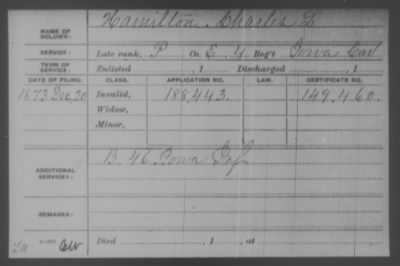 NAME OF SOLDIER: Hamilton, Charles D.
SERVICE: Late rank, P Co. E, 4 Reg't Iowa Cav
TERM OF SERVICE: Enlisted , 1 Discharged , 1
DATE OF FILING. CLASS. APPLICATION NO. LAW. CERTIFICATE NO.
1873 Dec, 20 Invalid, 188,443. 149,460.
Widow,
Minor,
ADDITIONAL SERVICES: B. 46. Iowa Inf
REMARKS:
Died , 1 , at